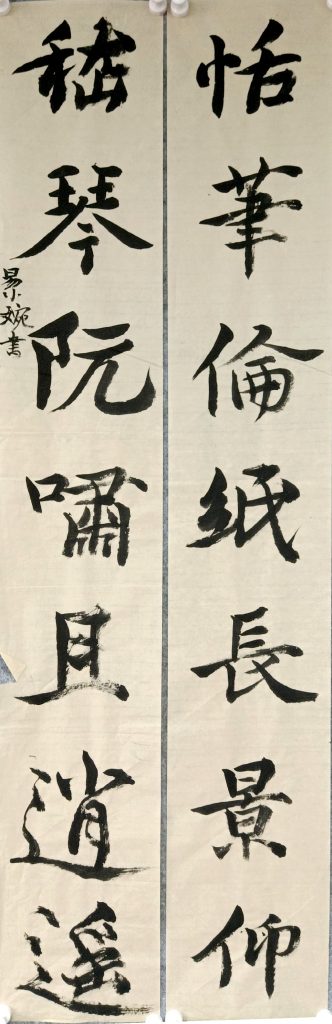 恬筆倫紙長景仰
嵇琴阮嘯且逍遥
景婉書